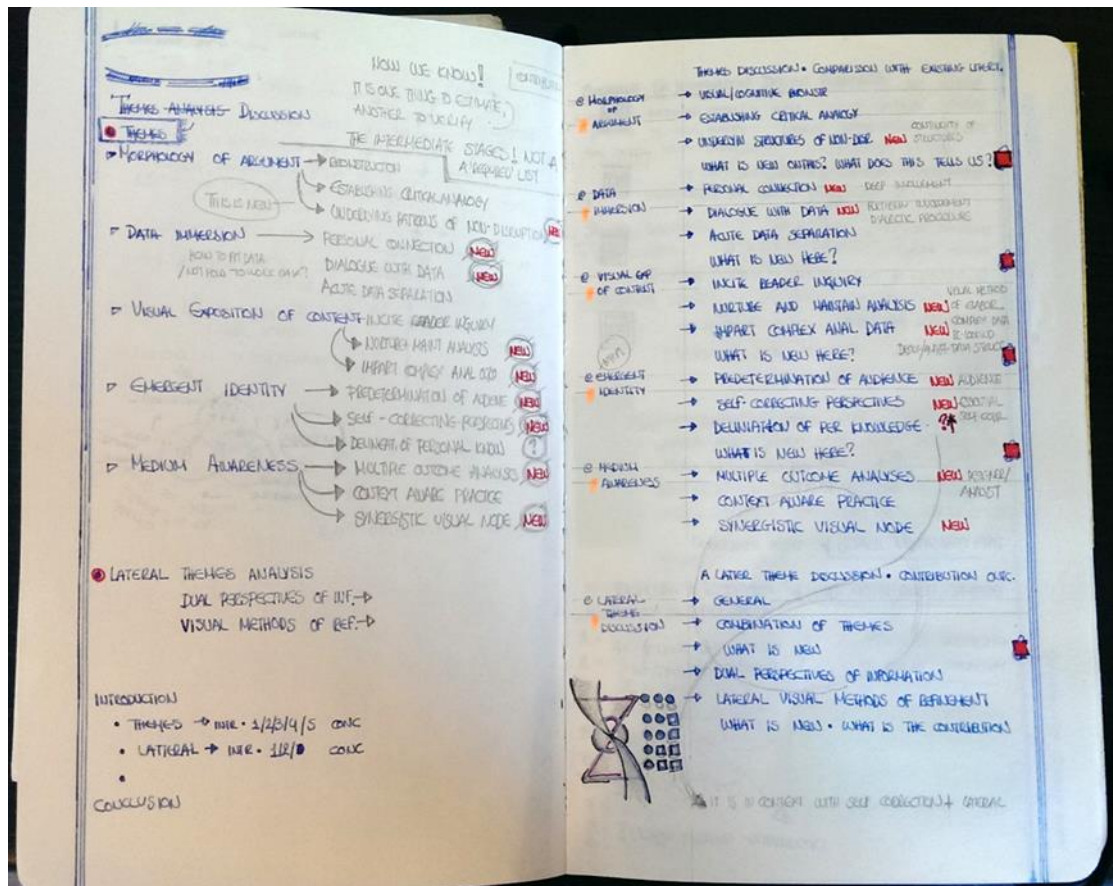 NOW WE KNOW!
IT IS ONE THING TO ESTIMATE,
ANOTHER TO VERIFY
THE INTERMEDIATE STAGES! NOT A
A 'REQUIRED' LIST
THEMES ANALYSIS DISCUSSION
THEMES
MORPHOLOGY OF ARGUMENT → RECONSTRUCTION
→ ESTABLISHING CRITICAL ANALOGY
THIS IS NEW
→ UNDERLYING PATTERNS OF NON-DISRUPTION NEW
DATA IMMERSION → PERSONAL CONNECTION NEW
DIALOGUE WITH DATA NEW
ACUTE DATA SEPARATION
VISUAL EXPOSITION OF CONTENT INCITE READER INQUIRY
→ NURTURE MAINT ANALYSIS NEW
→ IMPART COMPLEX ANAL NEW
EMERGENT IDENTITY → PREDETERMINATION OF NEW
→ SELF-CORRECTING NEW
→ DELINEAT. OF PERSONAL KNOW ?
MEDIUM AWARENESS → MULTIPLE OUTCOME ANALYSIS NEW
→ CONTEXT AWARE PRACTICE
→ SYNERGISTIC VISUAL NODE NEW
LATERAL THEMES ANALYSIS
DUAL PERSPECTIVES OF INF. →
VISUAL METHODS OF REF. →
INTRODUCTION
• THEMES → INTR • 1/2/3/4/5 CONC
• LATERAL → INTR • CONC
•
CONCLUSION
THEMES DISCUSSION • COMPARISION WITH EXISTING
MORPHOLOGY OF ARGUMENT → VISUAL/COGNITIVE
→ ESTABLISHING CRITICAL ANALOGY
→ STRUCTURES OF NON-DISR NEW CONTINUITY OF STRUCTURES
WHAT IS NEW ON THIS? WHAT DOES THIS TELLS US?
DATA IMMERSION → PERSONAL CONNECTION NEW DEEP INVOLVEMENT
→ DIALOGUE WITH DATA NEW DIALECTIC PROCEDURE
→ ACUTE DATA SEPARATION
WHAT IS NEW HERE?
VISUAL EXP OF CONTENT → INCITE READER INQUIRY
→ NURTURE AND MAINTAIN ANALYSIS NEW VISUAL METHOD OF
→ IMPART COMPLEX ANAL DATA NEW COMPLEX DATA
WHAT IS NEW HERE?
EMERGENT IDENTITY → PREDETERMINATION OF AUDIENCE NEW AUDIENCE
→ SELF-CORRECTING PERSPECTIVES NEW
→ DELINIATION OF PER KNOWLEDGE • ?
WHAT IS NEW HERE?
MEDIUM AWARENESS → MULTIPLE OUTCOME ANALYSES NEW DESIGNER/ANALYST
→ CONTEXT AWARE PRACTICE
→ SYNERGISTIC VISUAL NODE NEW
A LATER THEME DISCUSSION • CONTRIBUTION
LATERAL THEME DISCUSSION → GENERAL
→ COMBINATION OF THEMES
→ WHAT IS NEW
→ DUAL PERSPECTIVES OF INFORMATION
→ LATERAL VISUAL METHODS OF REFINEMENT
WHAT IS NEW • WHAT IS THE CONTRIBUTION
IT IS IN CONTEXT WITH SELF CORRECTION + LATERAL